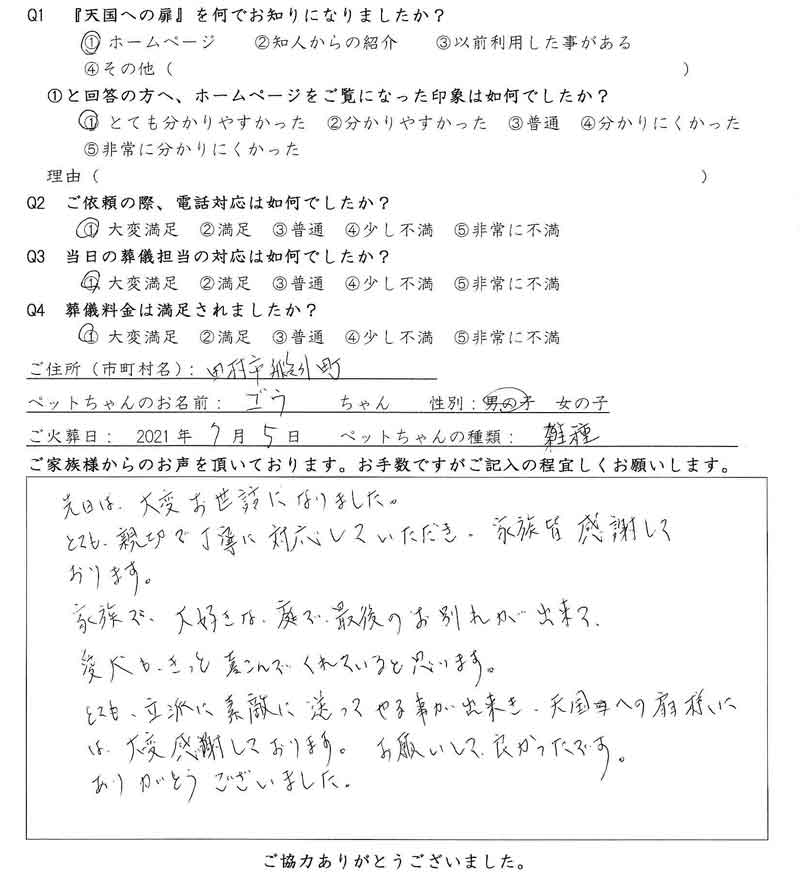 Q1 『天国への扉』を何でお知りになりましたか？
① ホームページ ②知人からの紹介 ③以前利用した事がある
④その他（ ）
①と回答の方へ、ホームページをご覧になった印象は如何でしたか？
① とても分かりやすかった ②分かりやすかった ③普通 ④分かりにくかった
⑤非常に分かりにくかった
理由（ ）
Q2 ご依頼の際、電話対応は如何でしたか？
① 大変満足 ②満足 ③普通 ④少し不満 ⑤非常に不満
Q3 当日の葬儀担当の対応は如何でしたか？
① 大変満足 ②満足 ③普通 ④少し不満 ⑤非常に不満
Q4 葬儀料金は満足されましたか？
① 大変満足 ②満足 ③普通 ④少し不満 ⑤非常に不満
ご住所（市町村名）：田村市船引町
ペットちゃんのお名前： ゴウ ちゃん 性別：男の子 女の子
ご火葬日： 2021年 7月 5日 ペットちゃんの種類： 雑種
ご家族様からのお声を頂いております。お手数ですがご記入の程宜しくお願いします。
先日は、大変お世話になりました。
とても、親切で丁寧に対応していただき、家族皆感謝して
おります。
家族で、大好きな、庭で、最後のお別れが出来て、
愛犬も、きっと喜こんでくれていると思います。
とても、立派に素敵に送ってやる事が出来き、天国への扉様に
は、大変感謝しております。お願いして、良かったです。
ありがとうございました。
ご協力ありがとうございました。